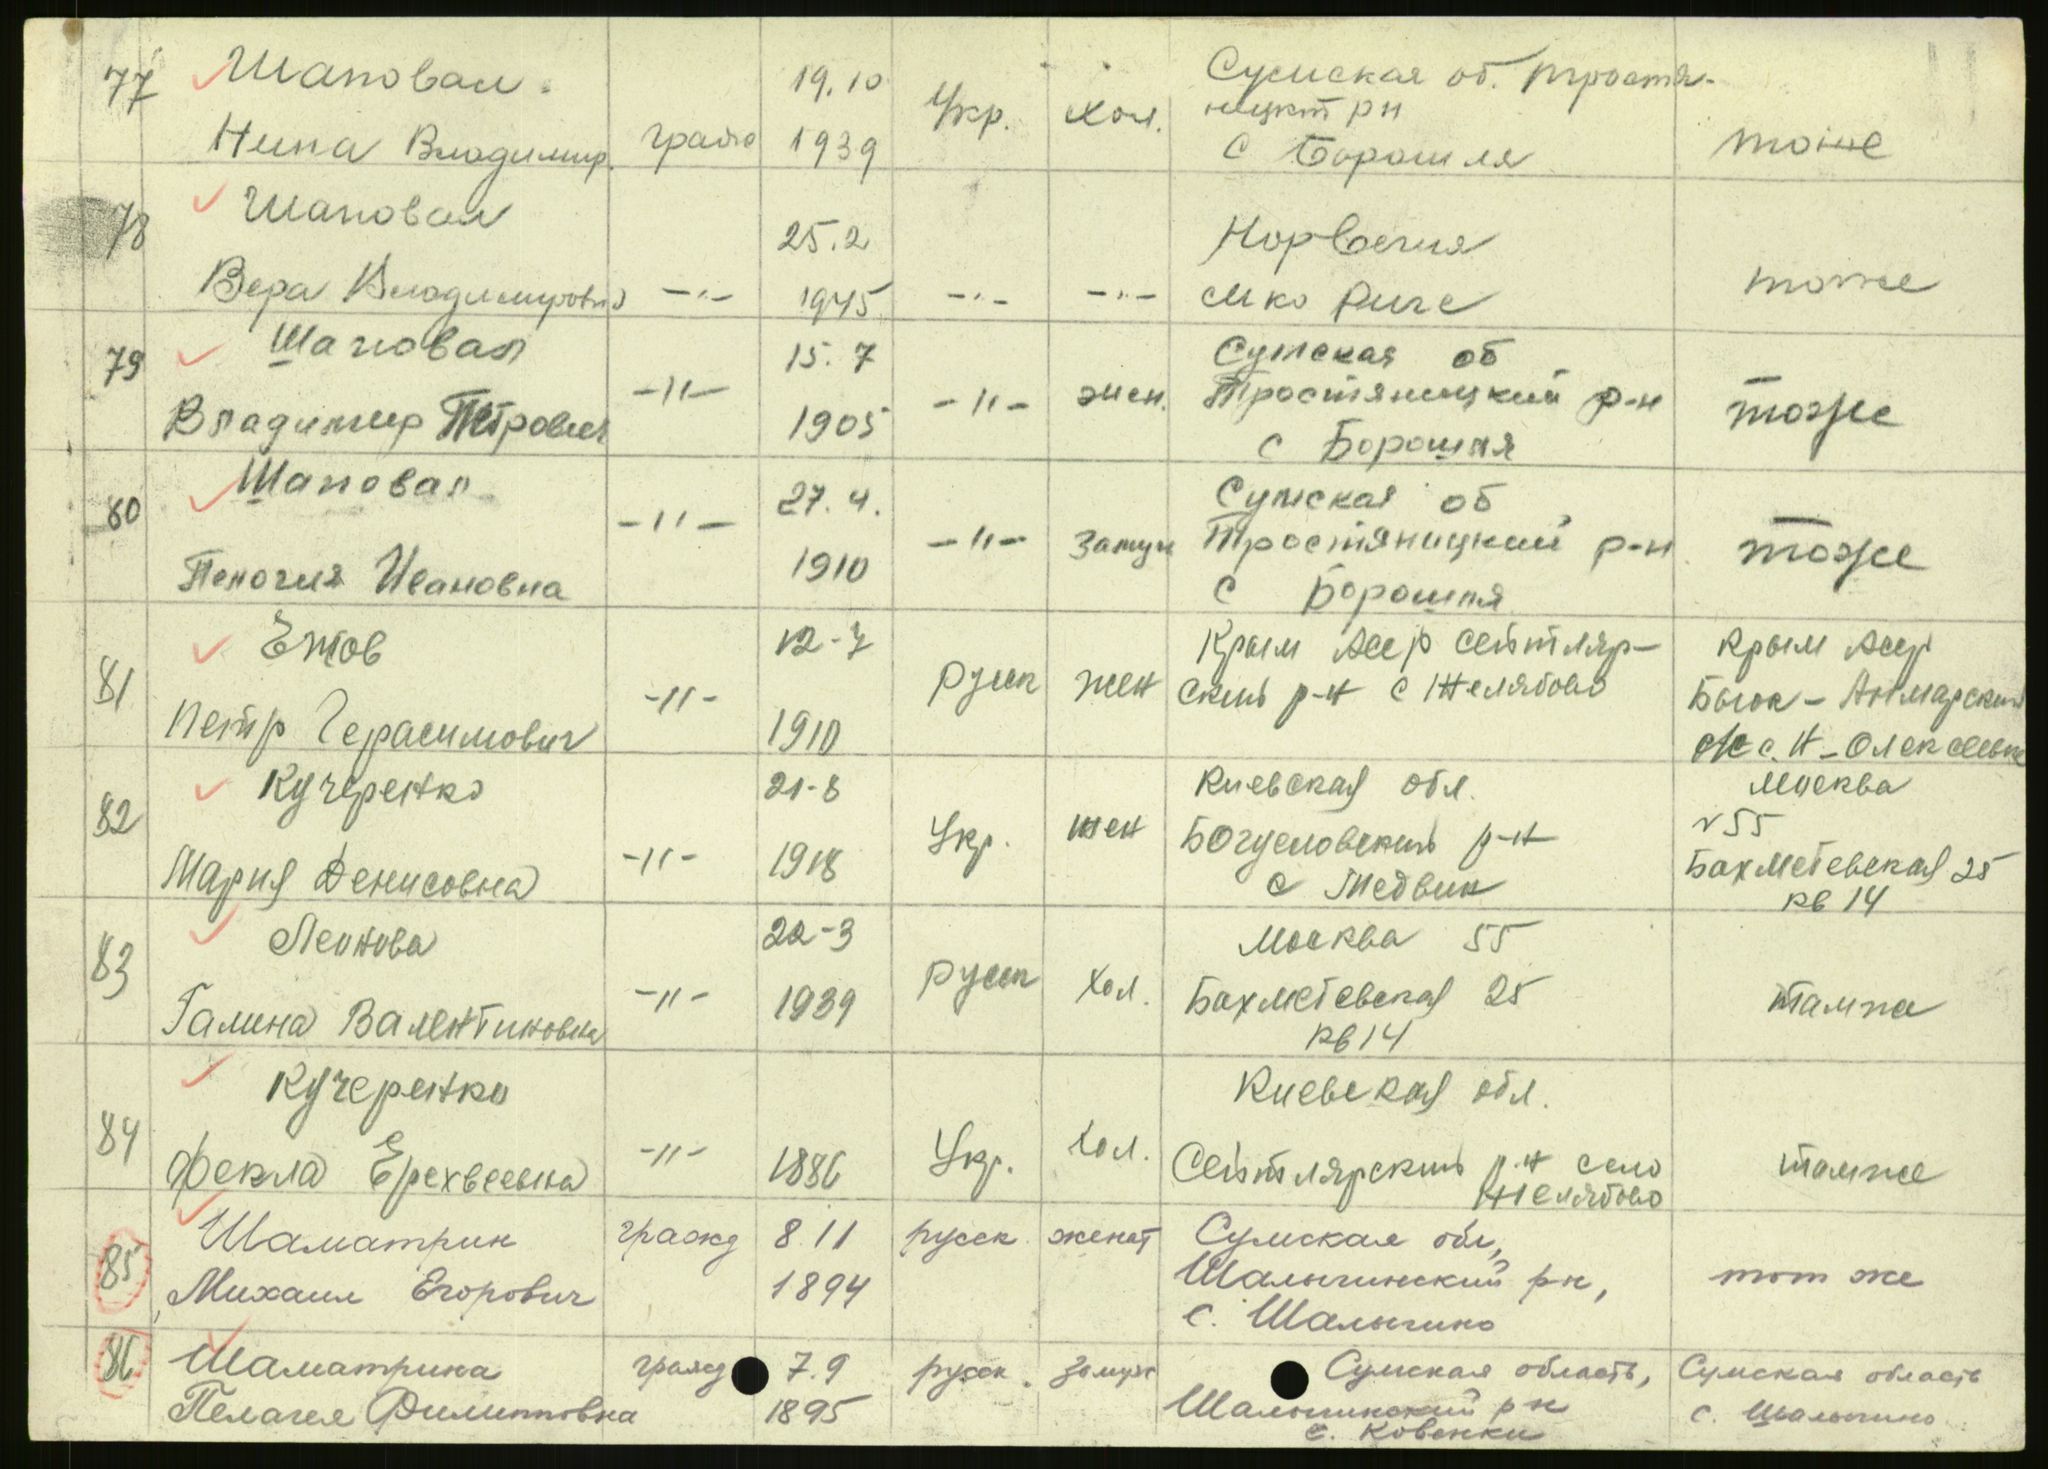 77 Шаповал. 19.10 Укр. Хол. Сумская об. тростя-
ницкт рн
Нина Владимир. гражд 1939 с Борошля тоже
78 Шаповал 25.2 Норвегия
Вера Владимировна -"- 1945 -"- -"- тоже
79 Шаповал 15.7 Сумская об
-"- -"- жен. Тростяницкий р-н тоже
Владимир Петрович 1905 с Борошля
80 Шаповал 27.4. Сумская об
-"- -"- замуж Тростяницкий р-н тоже
Пелогия Ивановна 1910 с Борошля
81 Ежов 12-7 русск жен Крым Асср Сейтляр- Крым Асср
-"- ский р-н с Желябово Биюк-Онларский
Петр Герасимович 1910 с. Н-Олексеевка
82 Кучеренко 21-8 Киевская обл. Москва
Укр. жен Богусловский р-н №55
Мария Денисовна -"- 1918 с Медвин Бахметевская 25
кв 14
83 Леонова 22-3 русск Хол. Москва 55
Галина Валентиновна -"- 1939 Бахметевская 25 тамже
кв 14
84 Кучеренко Киевская обл.
Фекла Ерехвеевна -"- 1886 Укр. Хол. Сейтлярский р-н село тамже
Желябово
85 Шаматрин гражд 8 11 русск женат Сумская обл,
Михаил Егорович 1894 Шалыгинский рн, тот же
с. Шалыгино
86 Шаматрина гражд 7.9 русск. замуж Сумская область, Сумская область
Пелагея Филипповна 1895 Шалыгинский рн с. Шалыгино
с. Ковенки